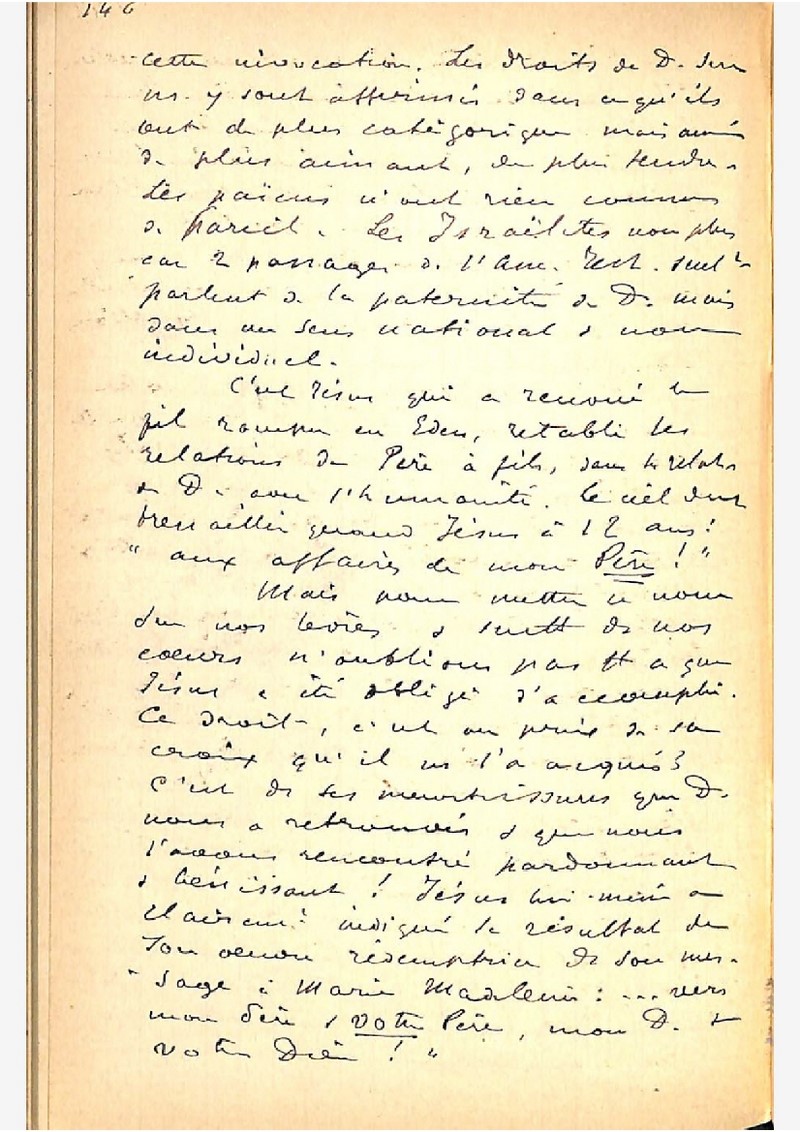 146
cette invocation. Les droits de D. sur
ns. y sont affirmés dans ce qu'ils
ont de plus catégorique mais aussi
de plus aimant, de plus tendre.
Les païens n'ont rien connu
de pareil. Les Israëlites non plus
car 2 passages de l'Anc. Test. seult
parlent de la paternité de D. mais
dans un sens national & non
individuel.
C'est Jésus qui a renoué le
fil rompu en Eden, rétabli les
relations de Père à fils, dans les relats
de D. avec l'humanité. Le ciel dut
tressaillir quand Jésus à 12 ans :
" aux affaires de mon Père ! "
Mais pour mettre ce nom
sur nos lèvres & surtt ds nos
coeurs n'oublions pas tt ce que
Jésus a été obligé d'accomplir.
Ce droit, c'est au prix de sa
croix qu'il ns l'a acquis
C'est ds ses meurtrissures que D.
nous a retrouvés & que nous
l'avons rencontré pardonnant
& bénissant ! Jésus lui-même a
clairemt indiqué le résultat de
son oeuvre rédemptrice ds son mes-
sage à Marie Madeleine : ... vers
mon Père & votre Père, mon D. &
votre Dieu ! "